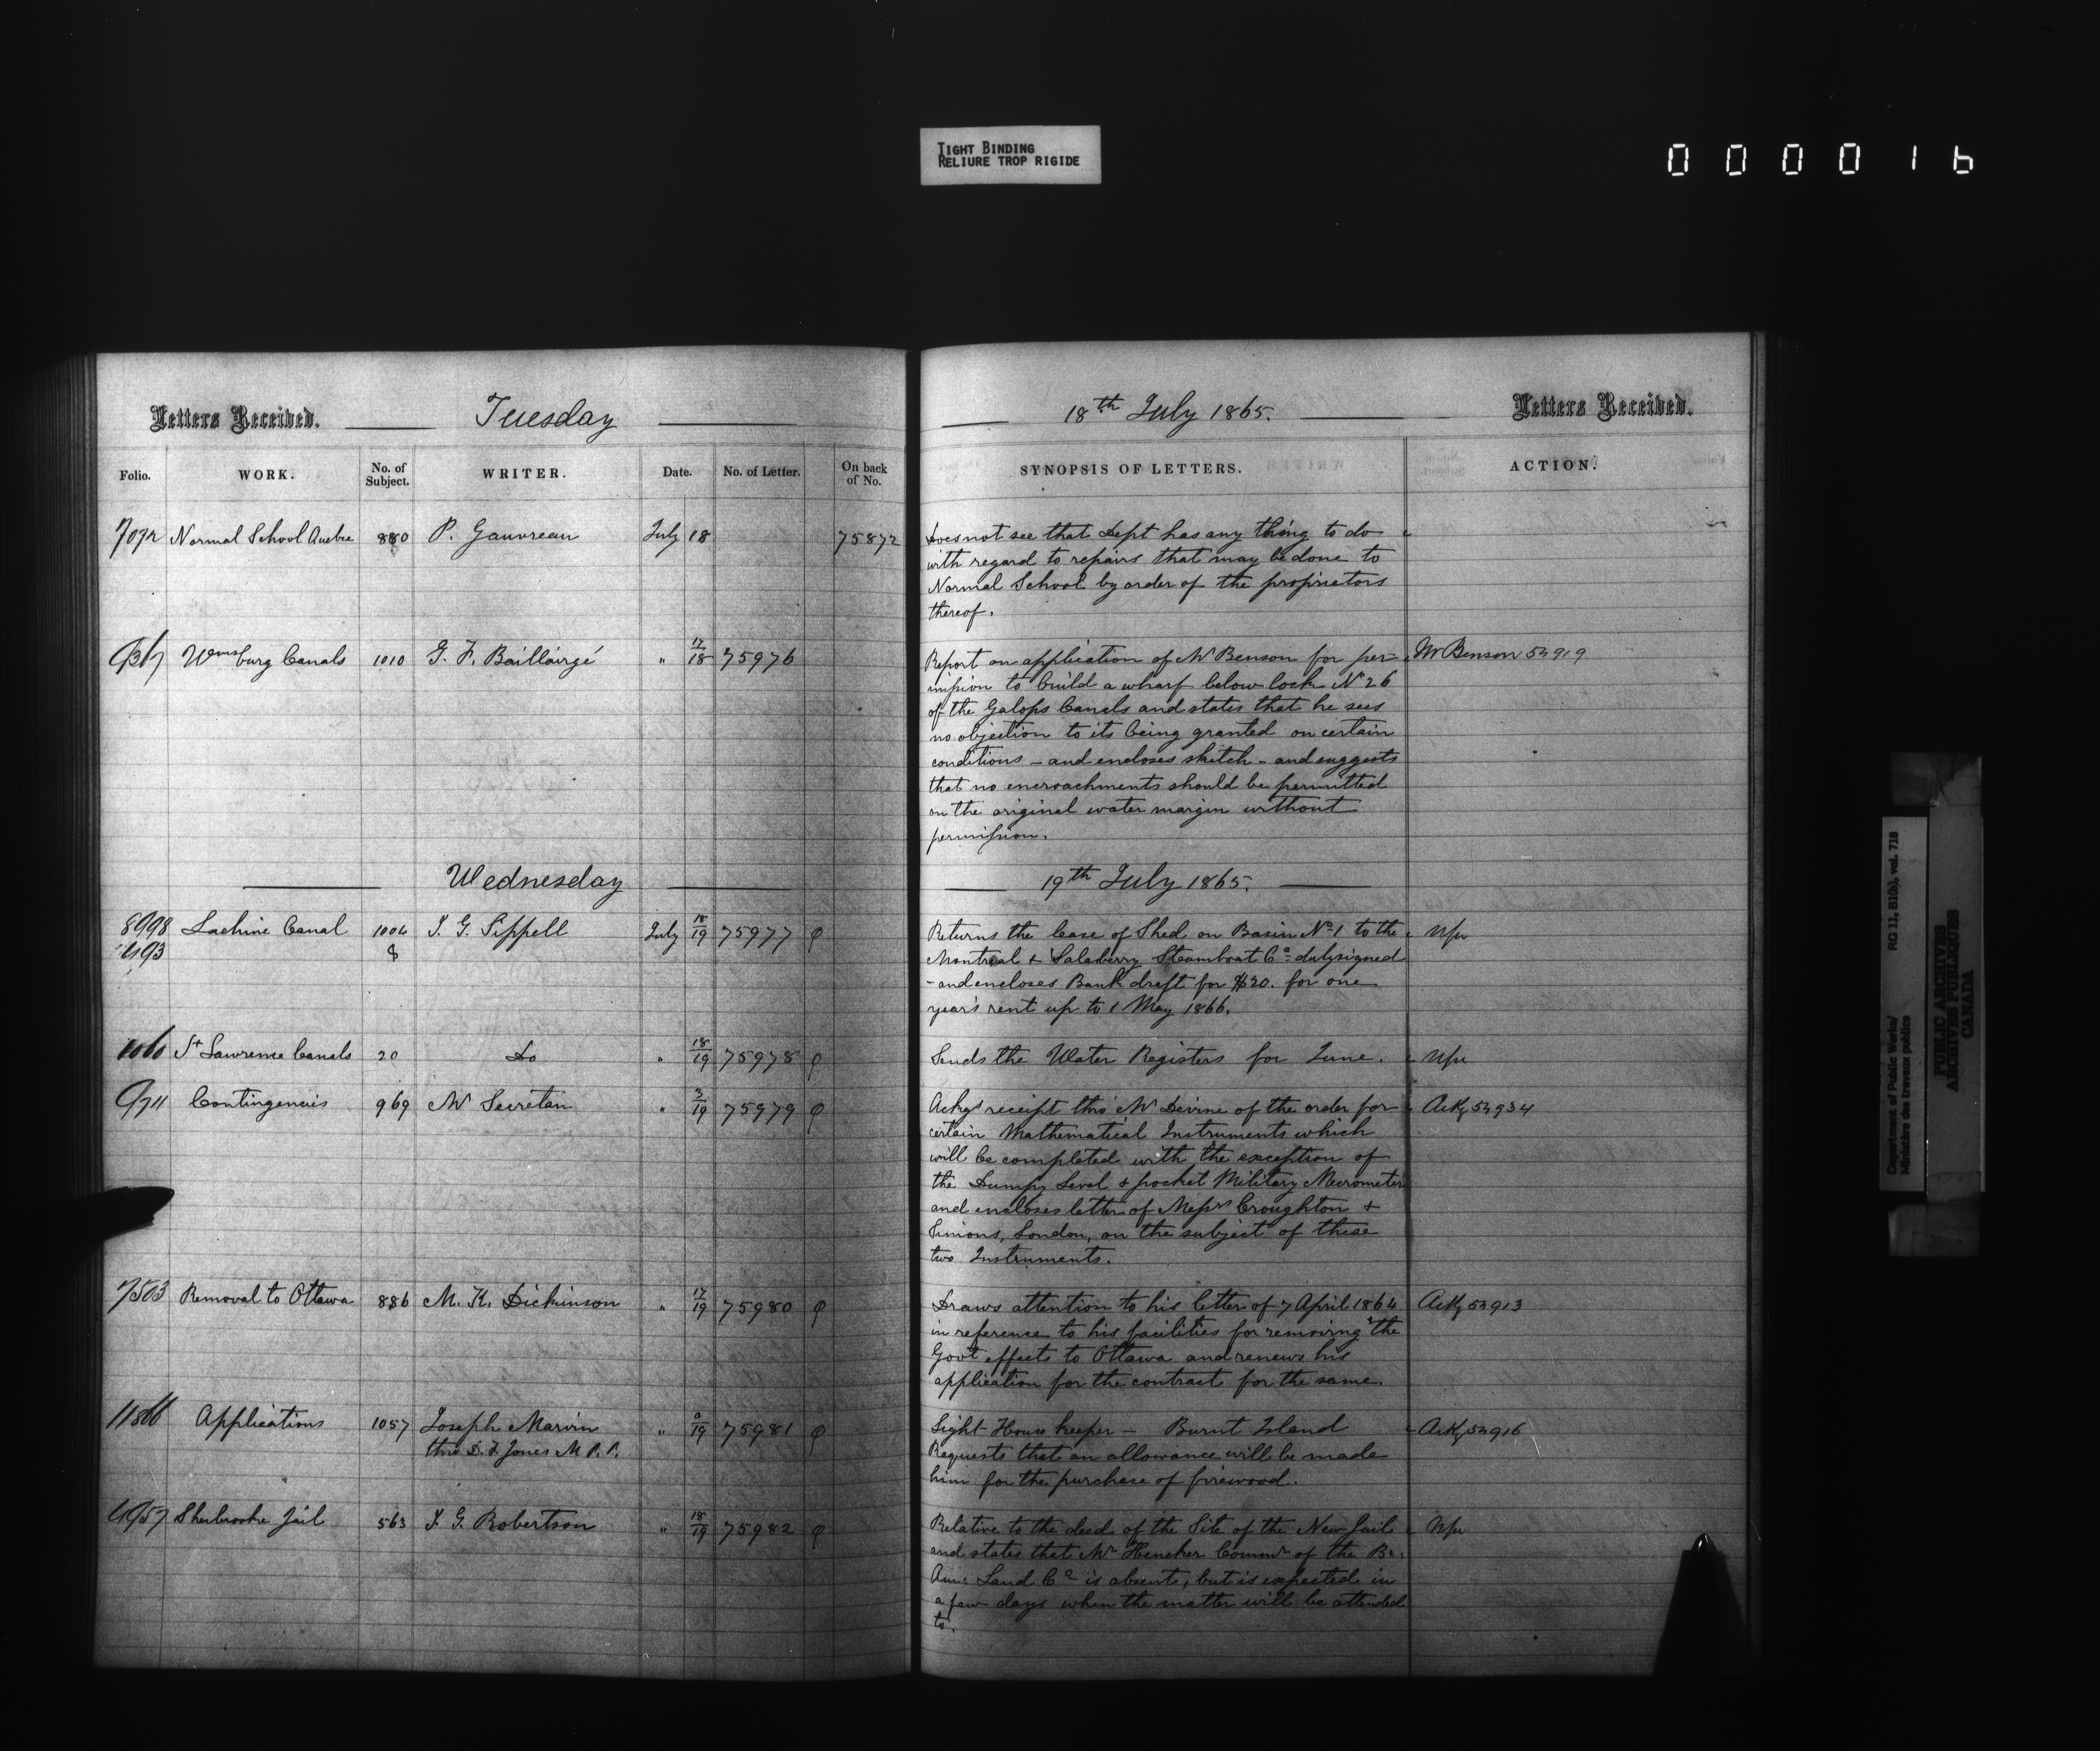 TIGHT BINDING
RELIURE TROP RIGIDE
000016
Letters Received. Tuesday 18th July 1865. Letters Received.
Folio. WORK. No. of Subject. WRITER. Date. No. of Letter. On back of No. SYNOPSIS OF LETTERS. ACTION.
7072 Normal School Quebec 880 P. Gauvreau July 18 75872 Does not see that Dept has any thing to do
with regard to repairs that may be done to
Normal School by order of the proprietors
thereof.
9367 Wmsburg Canals 1010 G. F. Baillairgé " 17/18 75976 Report on application of Mr Benson for per- Mr Benson 54919
mission to build a wharf below lock No 26
of the Galops Canals and states that he sees
no objection to its being granted on certain
conditions - and encloses sketch - and suggests
that no encroachments should be permitted
on the original water margin without
permission.
Wednesday 19th July 1865.
8998 Lachine Canal 1004 J. G. Sippell July 18/19 75977 Returns the lease of Shed on Basin No 1 to the
493 8 Montreal & Salaberry Steamboat Co duly signed
- and encloses Bank draft for $20. for one
year's rent up to 1 May 1866.
1060 St Lawrence Canals 20 Do " 18/19 75978 Sends the Water Registers for June.
9711 Contingencies 969 Mr Secretan " 3/19 75979 Ackgs receipt thro' Mr Devine of the order for Ackg 54934
certain Mathematical Instruments which
will be completed with the exception of
the Dumpy Level & pocket Military Mecrometer
and encloses letter of Messrs Croughton &
Simons, London, on the subject of these
two Instruments.
7503 Removal to Ottawa 886 M. K. Dickinson " 17/19 75980 Draws attention to his letter of 7 April 1864 Ackg 54913
in reference to his facilities for removing the
Govt effects to Ottawa and renews his
application for the contract for the same.
11866 Applications 1057 Joseph Marvin " 75981 Light House keeper - Burnt Island Ackg 54916
thro D. F. Jones M.P.P. Requests that an allowance will be made
him for the purchase of firewood.
4957 Sherbrooke Jail 563 J. G. Robertson " 18/19 75982 Relative to the deed of the Site of the New Jail
and states that Mr Heneker Commr of the Br:
Am: Land Co is absent, but is expected in
a few days when the matter will be attended
to.
Department of Public Works/ RG 11, B1(b), vol. 718
Ministère des travaux publics
PUBLIC ARCHIVES
ARCHIVES PUBLIQUES
CANADA